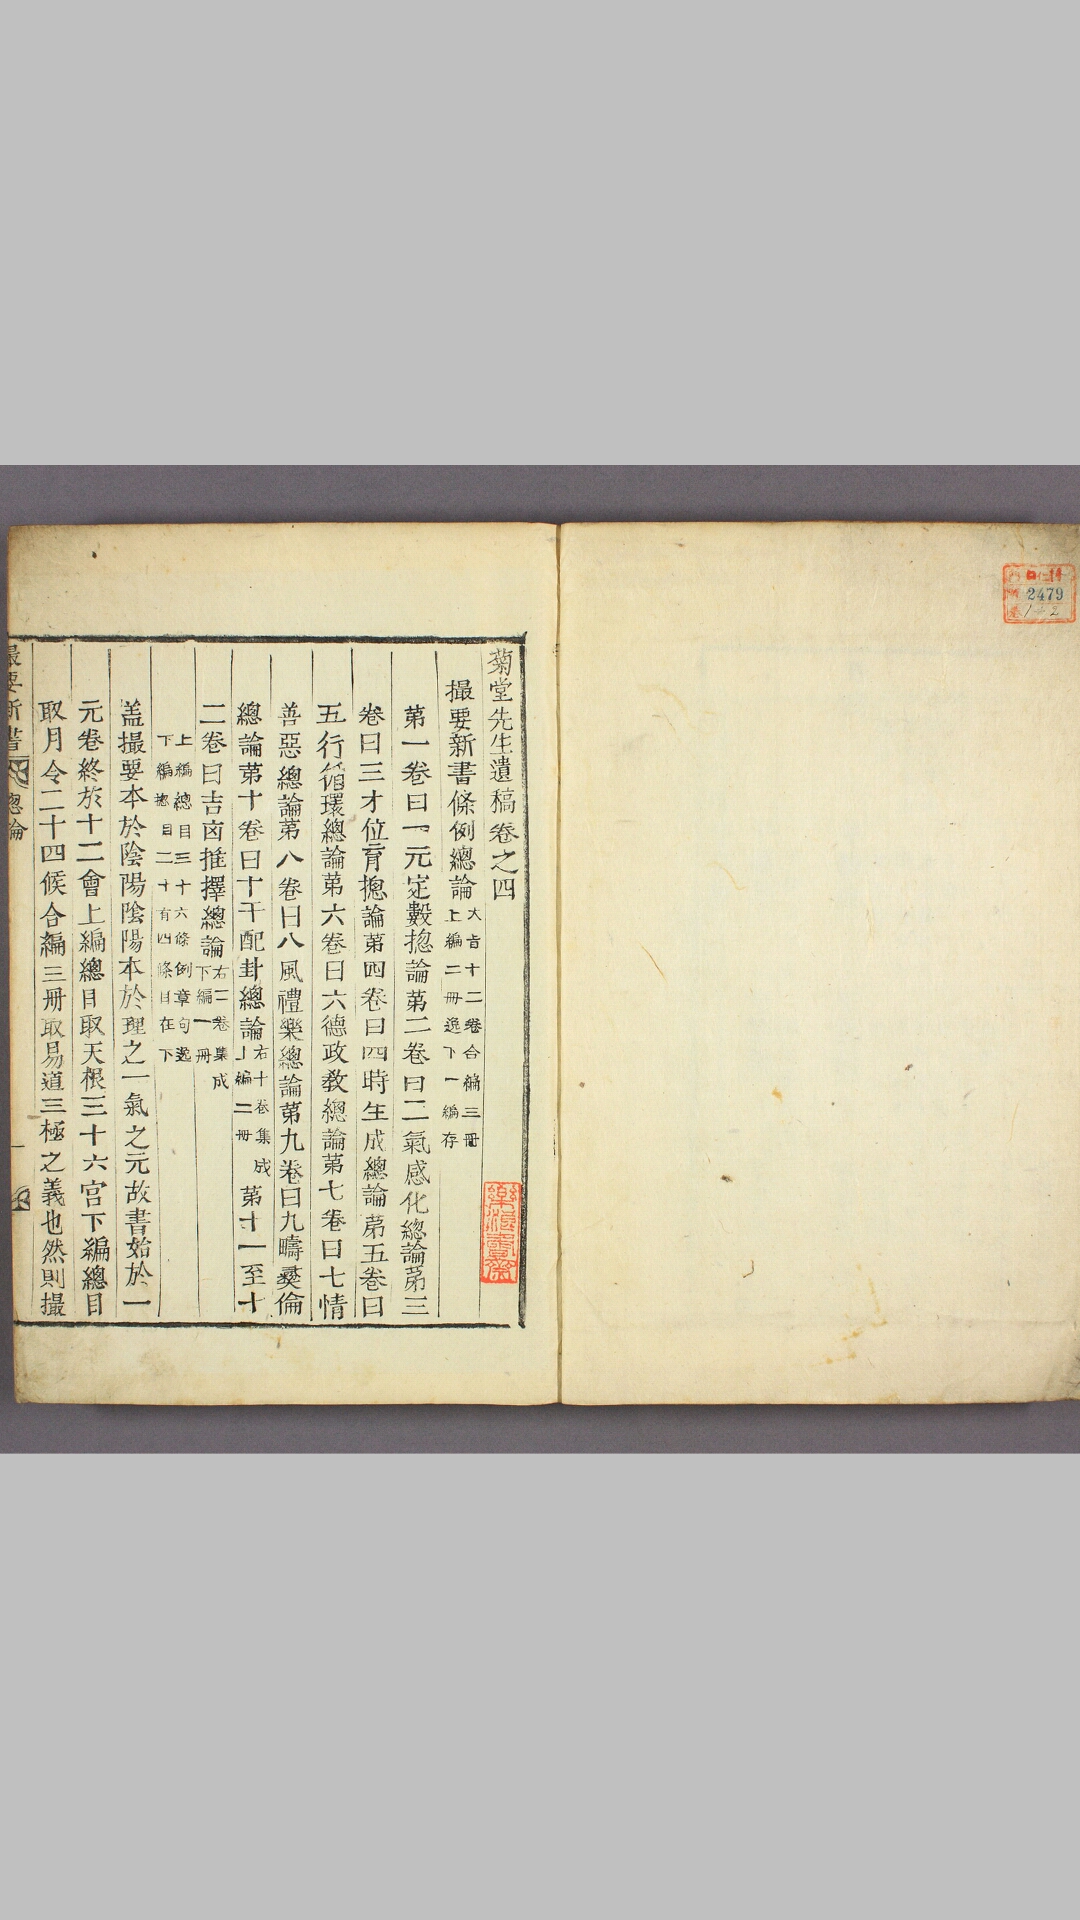 2479
菊堂先生遺稿卷之四
撮要新書條例總論
大旨十二卷合編三冊
上編二冊逸下一編存
第一卷曰一元定數揔論第二卷曰二氣感化總論第三
卷曰三才位育揔論第四卷曰四時生成總論第五卷曰
五行循環總論第六卷曰六德政敎總論第七卷曰七情
善惡總論第八卷曰八風禮樂總論第九卷曰九疇彜倫
總論第十卷曰十干配卦總論
右十卷集成
上編二冊
第十一至十
二卷曰吉凶推擇總論
右二卷集成
下編一冊
上編總目三十六條例章句逸
下編揔目二十有四條目在下
盖撮要本於陰陽陰陽本於理之一氣之元故書始於一
元卷終於十二會上編總目取天根三十六宮下編總目
取月令二十四候合編三冊取易道三極之義也然則撮
撮要新書
總論
一